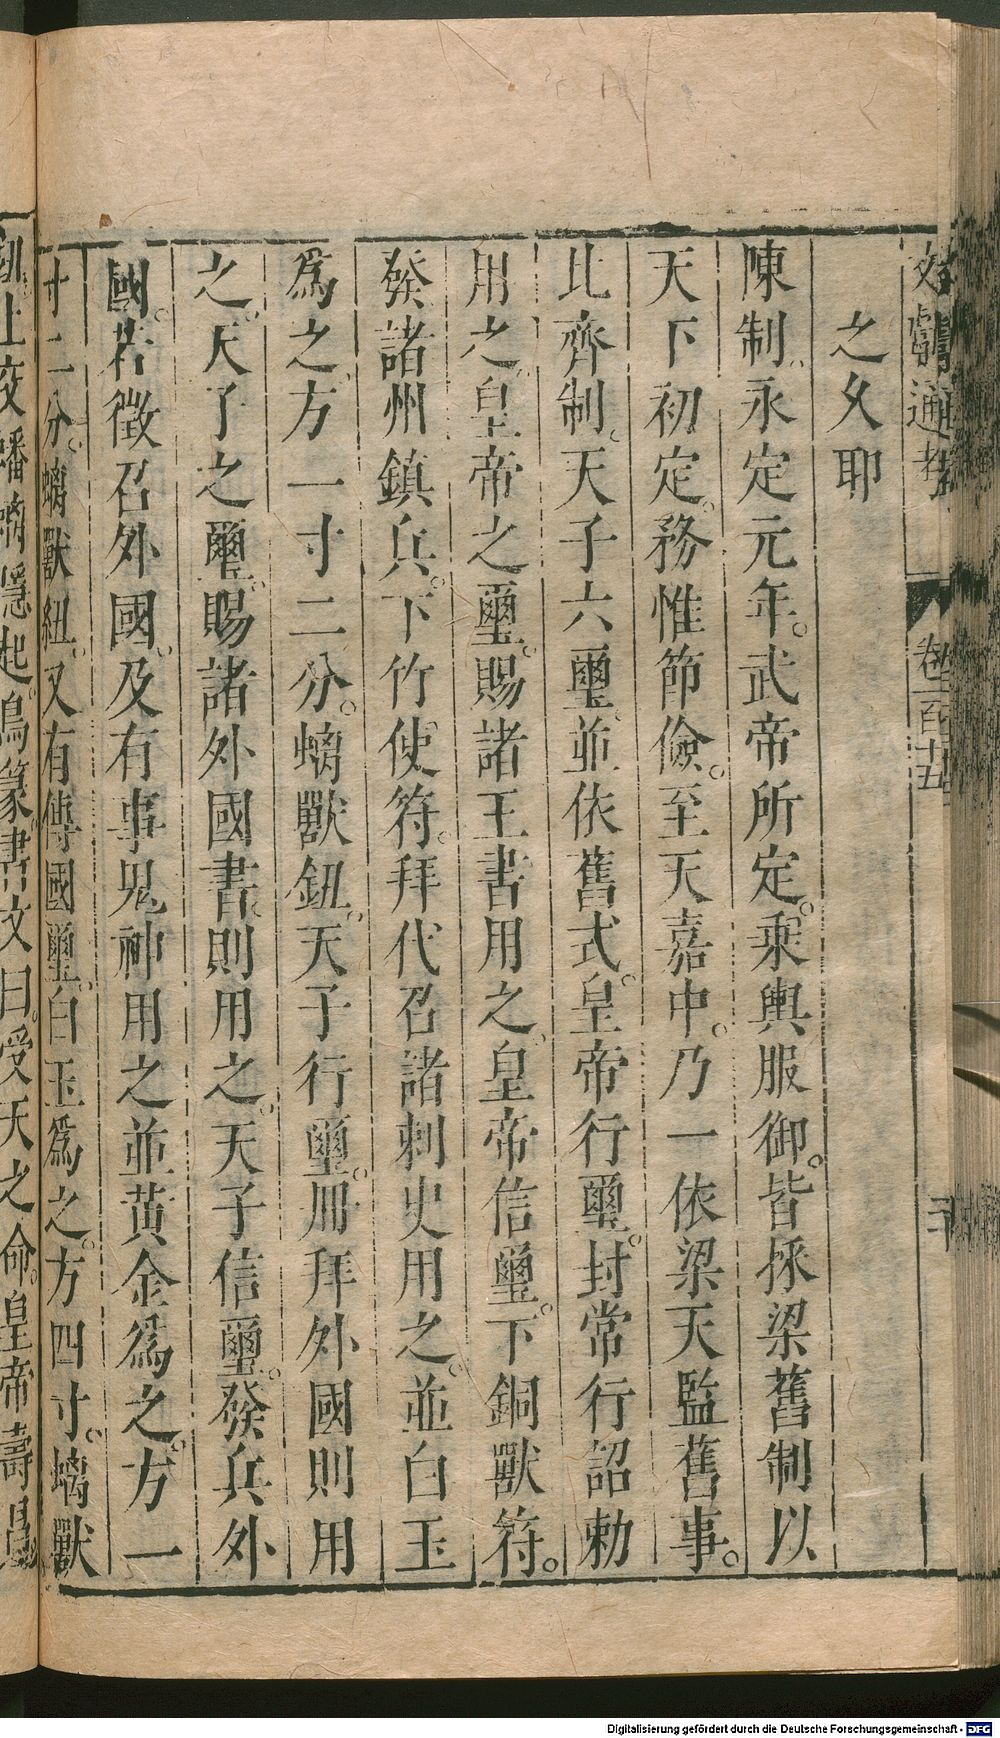 文獻通考 卷一百十五
之久耶
陳制永定元年武帝所定乘輿服御皆採梁舊制以
天下初定務惟節儉至天嘉中乃一依梁天監舊事
北齊制天子六璽並依舊式皇帝行璽封常行詔勅
用之皇帝之璽賜諸王書用之皇帝信璽下銅獸符
發諸州鎮兵下竹使符拜代召諸刺史用之並白玉
爲之方一寸二分螭獸鈕天子行璽冊拜外國則用
之天子之璽賜諸外國書則用之天子信璽發兵外
國若徵召外國及有事鬼神用之並黃金爲之方一
寸二分螭獸紐又有傳國璽白玉爲之方四寸螭獸
鈕上交蟠螭隱起鳥篆書文曰受天之命皇帝壽昌
Digitalisierung gefördert durch die Deutsche Forschungsgemeinschaft - DFG